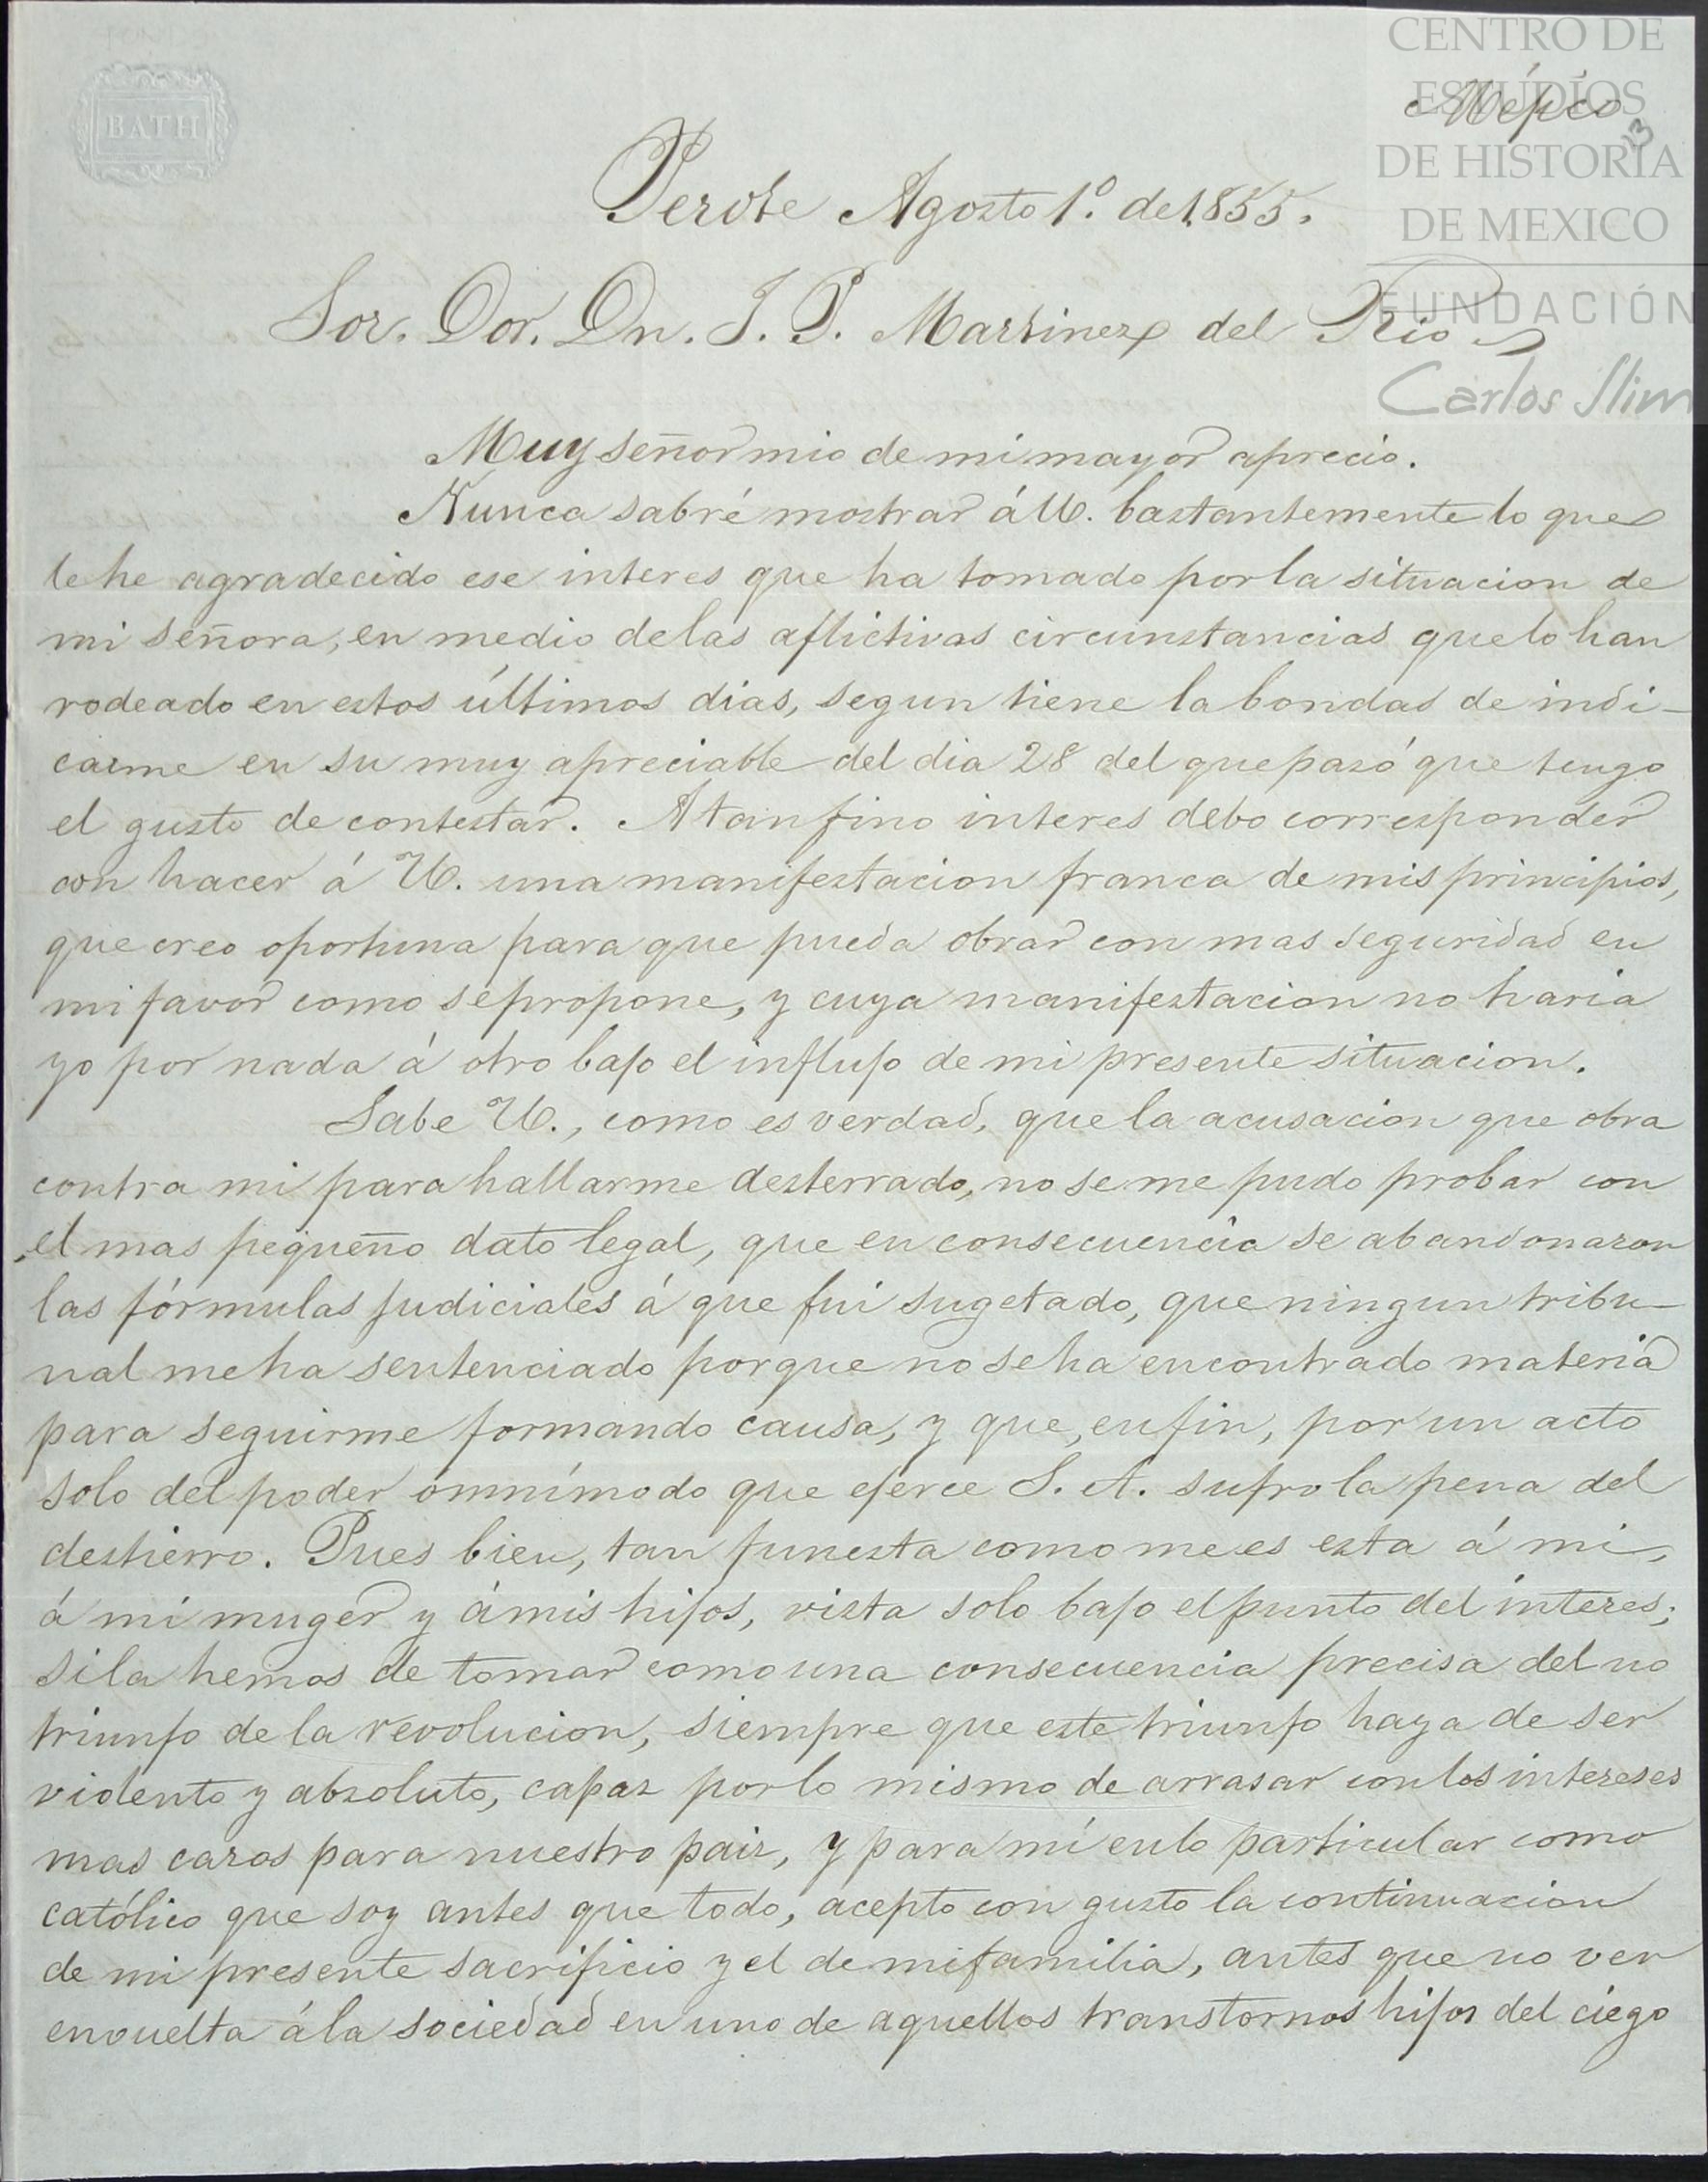 BATH
CENTRO DE
ESTUDIOS
DE HISTORIA
DE MEXICO
FUNDACIÓN
Carlos Slim
Méjico
13
Perote Agosto 1.º de 1855.
Sor. Dor. Dn. J. P. Martinez del Rio
Muy señor mio de mi mayor aprecio.
Nunca sabré mostrar á U. bastantemente lo que
le he agradecido ese interes que ha tomado por la situacion de
mi señora, en medio de las aflictivas circunstancias que lo han
rodeado en estos últimos dias, segun tiene la bondad de indi-
carme en su muy apreciable del dia 28 del que pasó que tengo
el gusto de contestar. A tan fino interes debo corresponder
con hacer á U. una manifestacion franca de mis principios,
que creo oportuna para que pueda obrar con mas seguridad en
mi favor como se propone, y cuya manifestacion no haria
yo por nada á otro bajo el influjo de mi presente situacion.
Sabe U., como es verdad, que la acusacion que obra
contra mi para hallarme desterrado, no se me pudo probar con
el mas pequeño dato legal, que en consecuencia se abandonaron
las fórmulas judiciales á que fui sugetado, que ningun tribu-
nal me ha sentenciado porque no se ha encontrado materia
para seguirme formando causa, y que, en fin, por un acto
solo del poder omnímodo que ejerce S. A. sufro la pena del
destierro. Pues bien, tan funesta como me es esta á mi,
á mi muger y á mis hijos, vista solo bajo el punto del interes;
si la hemos de tomar como una consecuencia precisa del no
triunfo de la revolucion, siempre que este triunfo haya de ser
violento y absoluto, capaz por lo mismo de arrasar con los intereses
mas caros para nuestro pais, y para mí en lo particular como
católico que soy antes que todo, acepto con gusto la continuacion
de mi presente sacrificio y el de mi familia, antes que no ver
envuelta á la sociedad en uno de aquellos transtornos hijos del ciego